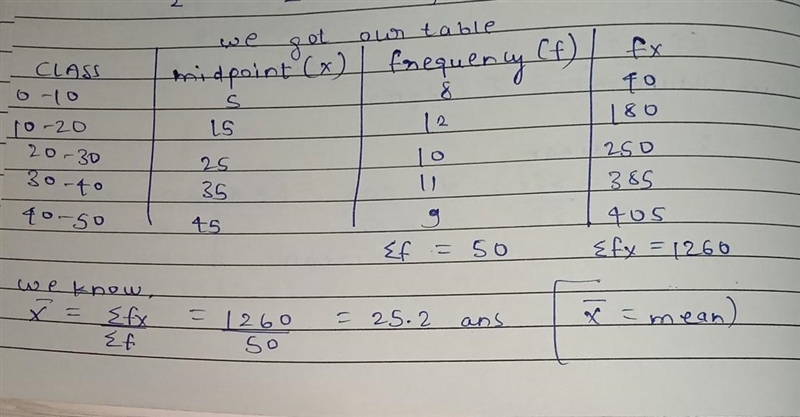 we got our table
CLASS midpoint (x) frequency (f) fx
0-10 5 8 40
10-20 15 12 180
20-30 25 10 250
30-40 35 11 385
40-50 45 9 405
Σf = 50 Σfx = 1260
we know,
x̄ = Σfx/Σf = 1260/50 = 25.2 ans [x̄ = mean)